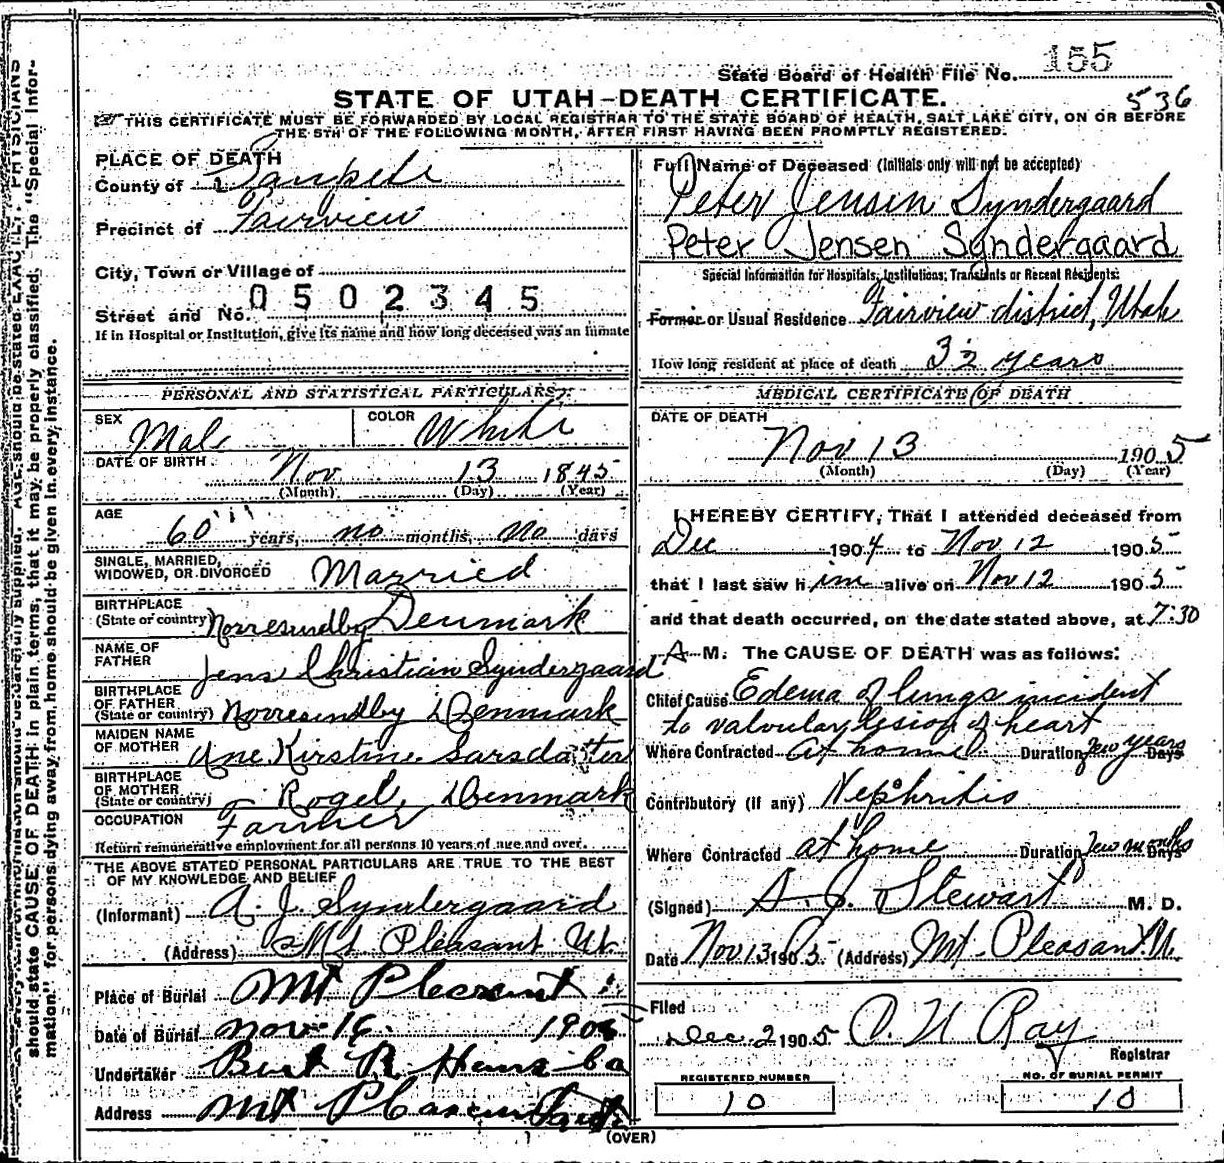 State Board of Health File No. 155
STATE OF UTAH-DEATH CERTIFICATE.
536
THIS CERTIFICATE MUST BE FORWARDED BY LOCAL REGISTRAR TO THE STATE BOARD OF HEALTH, SALT LAKE CITY, ON OR BEFORE
THE 5TH OF THE FOLLOWING MONTH, AFTER FIRST HAVING BEEN PROMPTLY REGISTERED.
PLACE OF DEATH
County of Sanpete
Precinct of Fairview
City, Town or Village of
0502345
Street and No.
If in Hospital or Institution, give its name and how long deceased was an inmate
PERSONAL AND STATISTICAL PARTICULARS.
SEX Male COLOR White
DATE OF BIRTH Nov 13 1845
(Month) (Day) (Year)
AGE
60 years, no months, no days
SINGLE, MARRIED,
WIDOWED, OR DIVORCED Married
BIRTHPLACE
(State or country) Norresundby Denmark
NAME OF
FATHER Jens Christian Syndergaard
BIRTHPLACE
OF FATHER
(State or country) Norresundby Denmark
MAIDEN NAME
OF MOTHER Ane Kirstine
BIRTHPLACE
OF MOTHER
(State or country) Rogel, Denmark
OCCUPATION Farmer
Return remunerative employment for all persons 10 years of age and over.
THE ABOVE STATED PERSONAL PARTICULARS ARE TRUE TO THE BEST
OF MY KNOWLEDGE AND BELIEF
(Informant) A. J. Syndergaard
(Address) Mt Pleasant Ut.
Place of Burial Mt Pleasant
Date of Burial Nov 16 1905
Undertaker Burt R Hans Co
Address Mt Pleasant Utah
Full Name of Deceased (Initials only will not be accepted)
Peter Jensen Syndergaard
Peter Jensen Syndergaard
Special Information for Hospitals, Institutions, Transients or Recent Residents:
Former or Usual Residence Fairview district, Utah
How long resident at place of death 32 years
MEDICAL CERTIFICATE OF DEATH
DATE OF DEATH
Nov 13 1905
(Month) (Day) (Year)
I HEREBY CERTIFY, That I attended deceased from
Dec 1904 to Nov 12 1905
that I last saw him alive on Nov 12 1905
and that death occurred, on the date stated above, at 7:30
A M. The CAUSE OF DEATH was as follows:
Chief Cause Edema of lungs incident
to valvular lesion of heart
Where Contracted At home Duration few years Days
Contributory (if any) Nephritis
Where Contracted at home Duration few months Days
(Signed) A. J. Stewart M. D.
Date Nov 13 1905 (Address) Mt. Pleasant U.
Filed
Dec. 2 1905 O. N. Ray
Registrar
REGISTERED NUMBER
10
NO. OF BURIAL PERMIT
10
(OVER)
should state CAUSE OF DEATH in plain terms, that it may be properly classified. The "Special Infor-
mation" for persons dying away from home should be given in every instance.